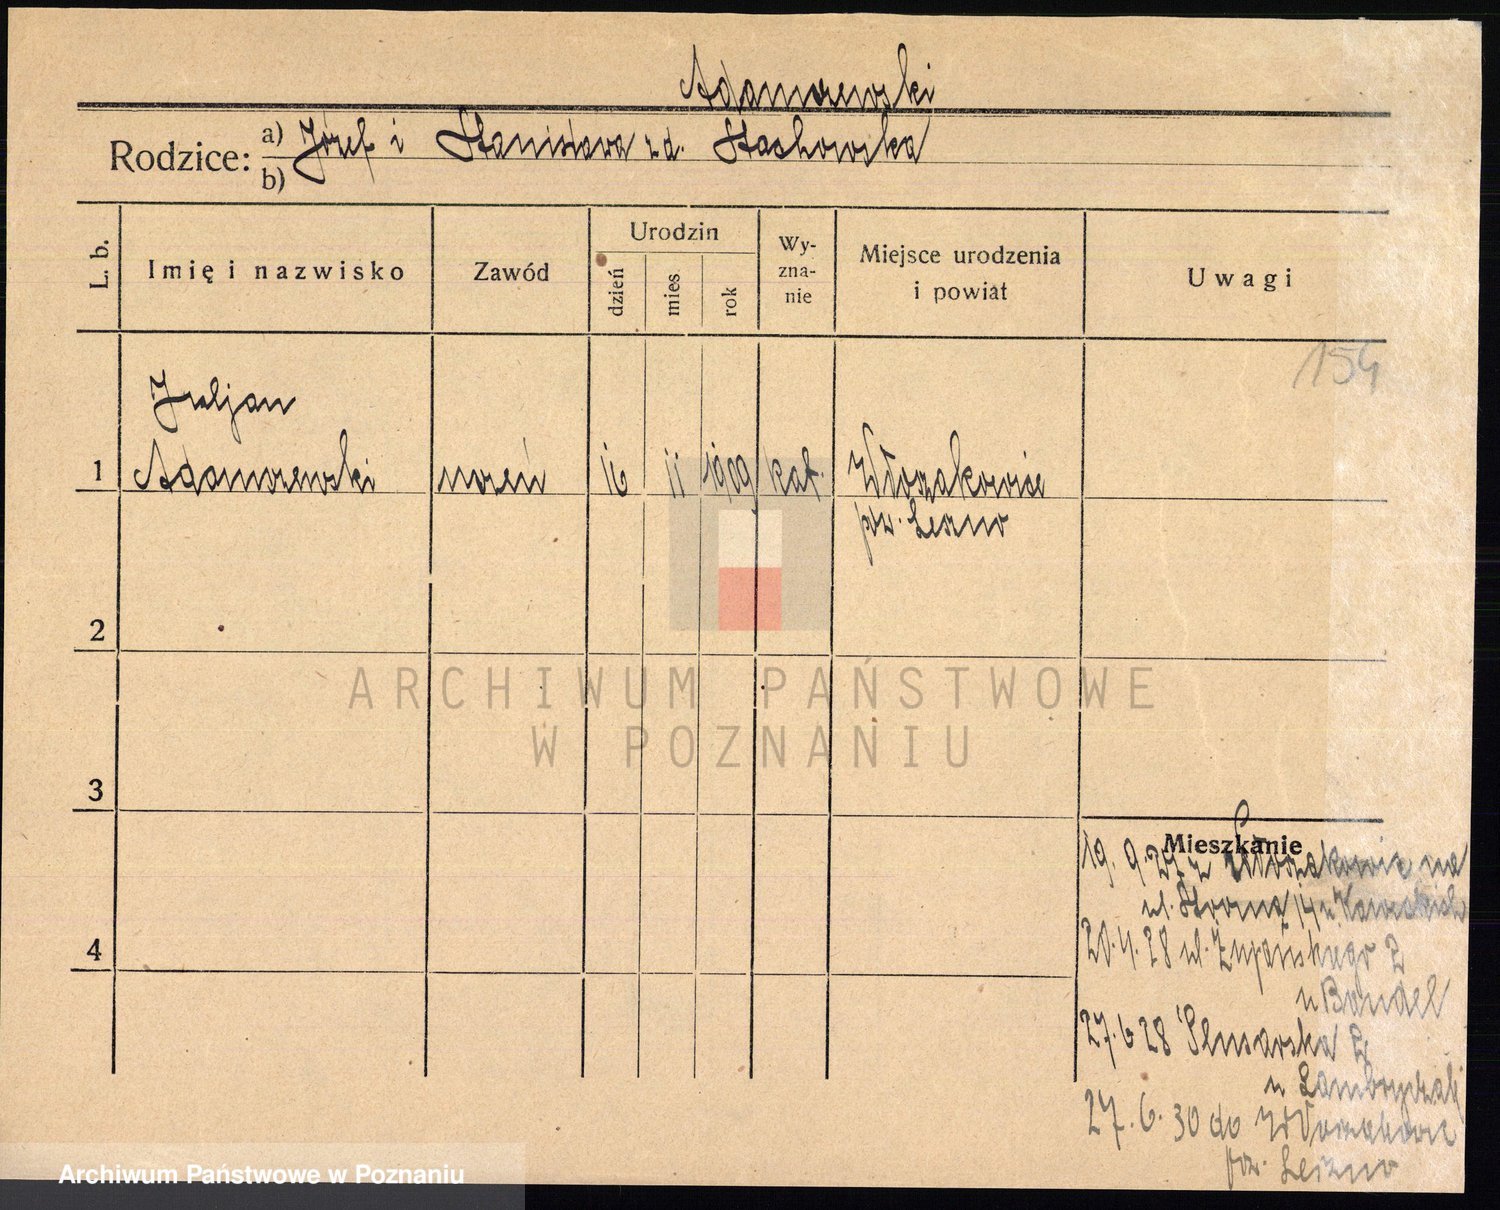 Adamczewski
Rodzice: a) Józef i Stanisława z d. Stachowska
b)
L. b. Imię i nazwisko Zawód Urodzin dzień mies rok Wy-zna-nie Miejsce urodzenia i powiat Uwagi
154
Juljan
1 Adamczewski uczeń 16 11 1909 kat. Włoszakowice
pow. Leszno
2
ARCHIWUM PAŃSTWOWE
W POZNANIU
3
Mieszkanie
19. 9. 27 z Włoszakowic na
ul. Stroma 14 u
20. 4. 28 ul. Żupańskiego 2
4
u Bandel
27. 6 28 Ślusarska
u
27. 6. 30 do Włoszakowic
pow. Leszno
Archiwum Państwowe w Poznaniu